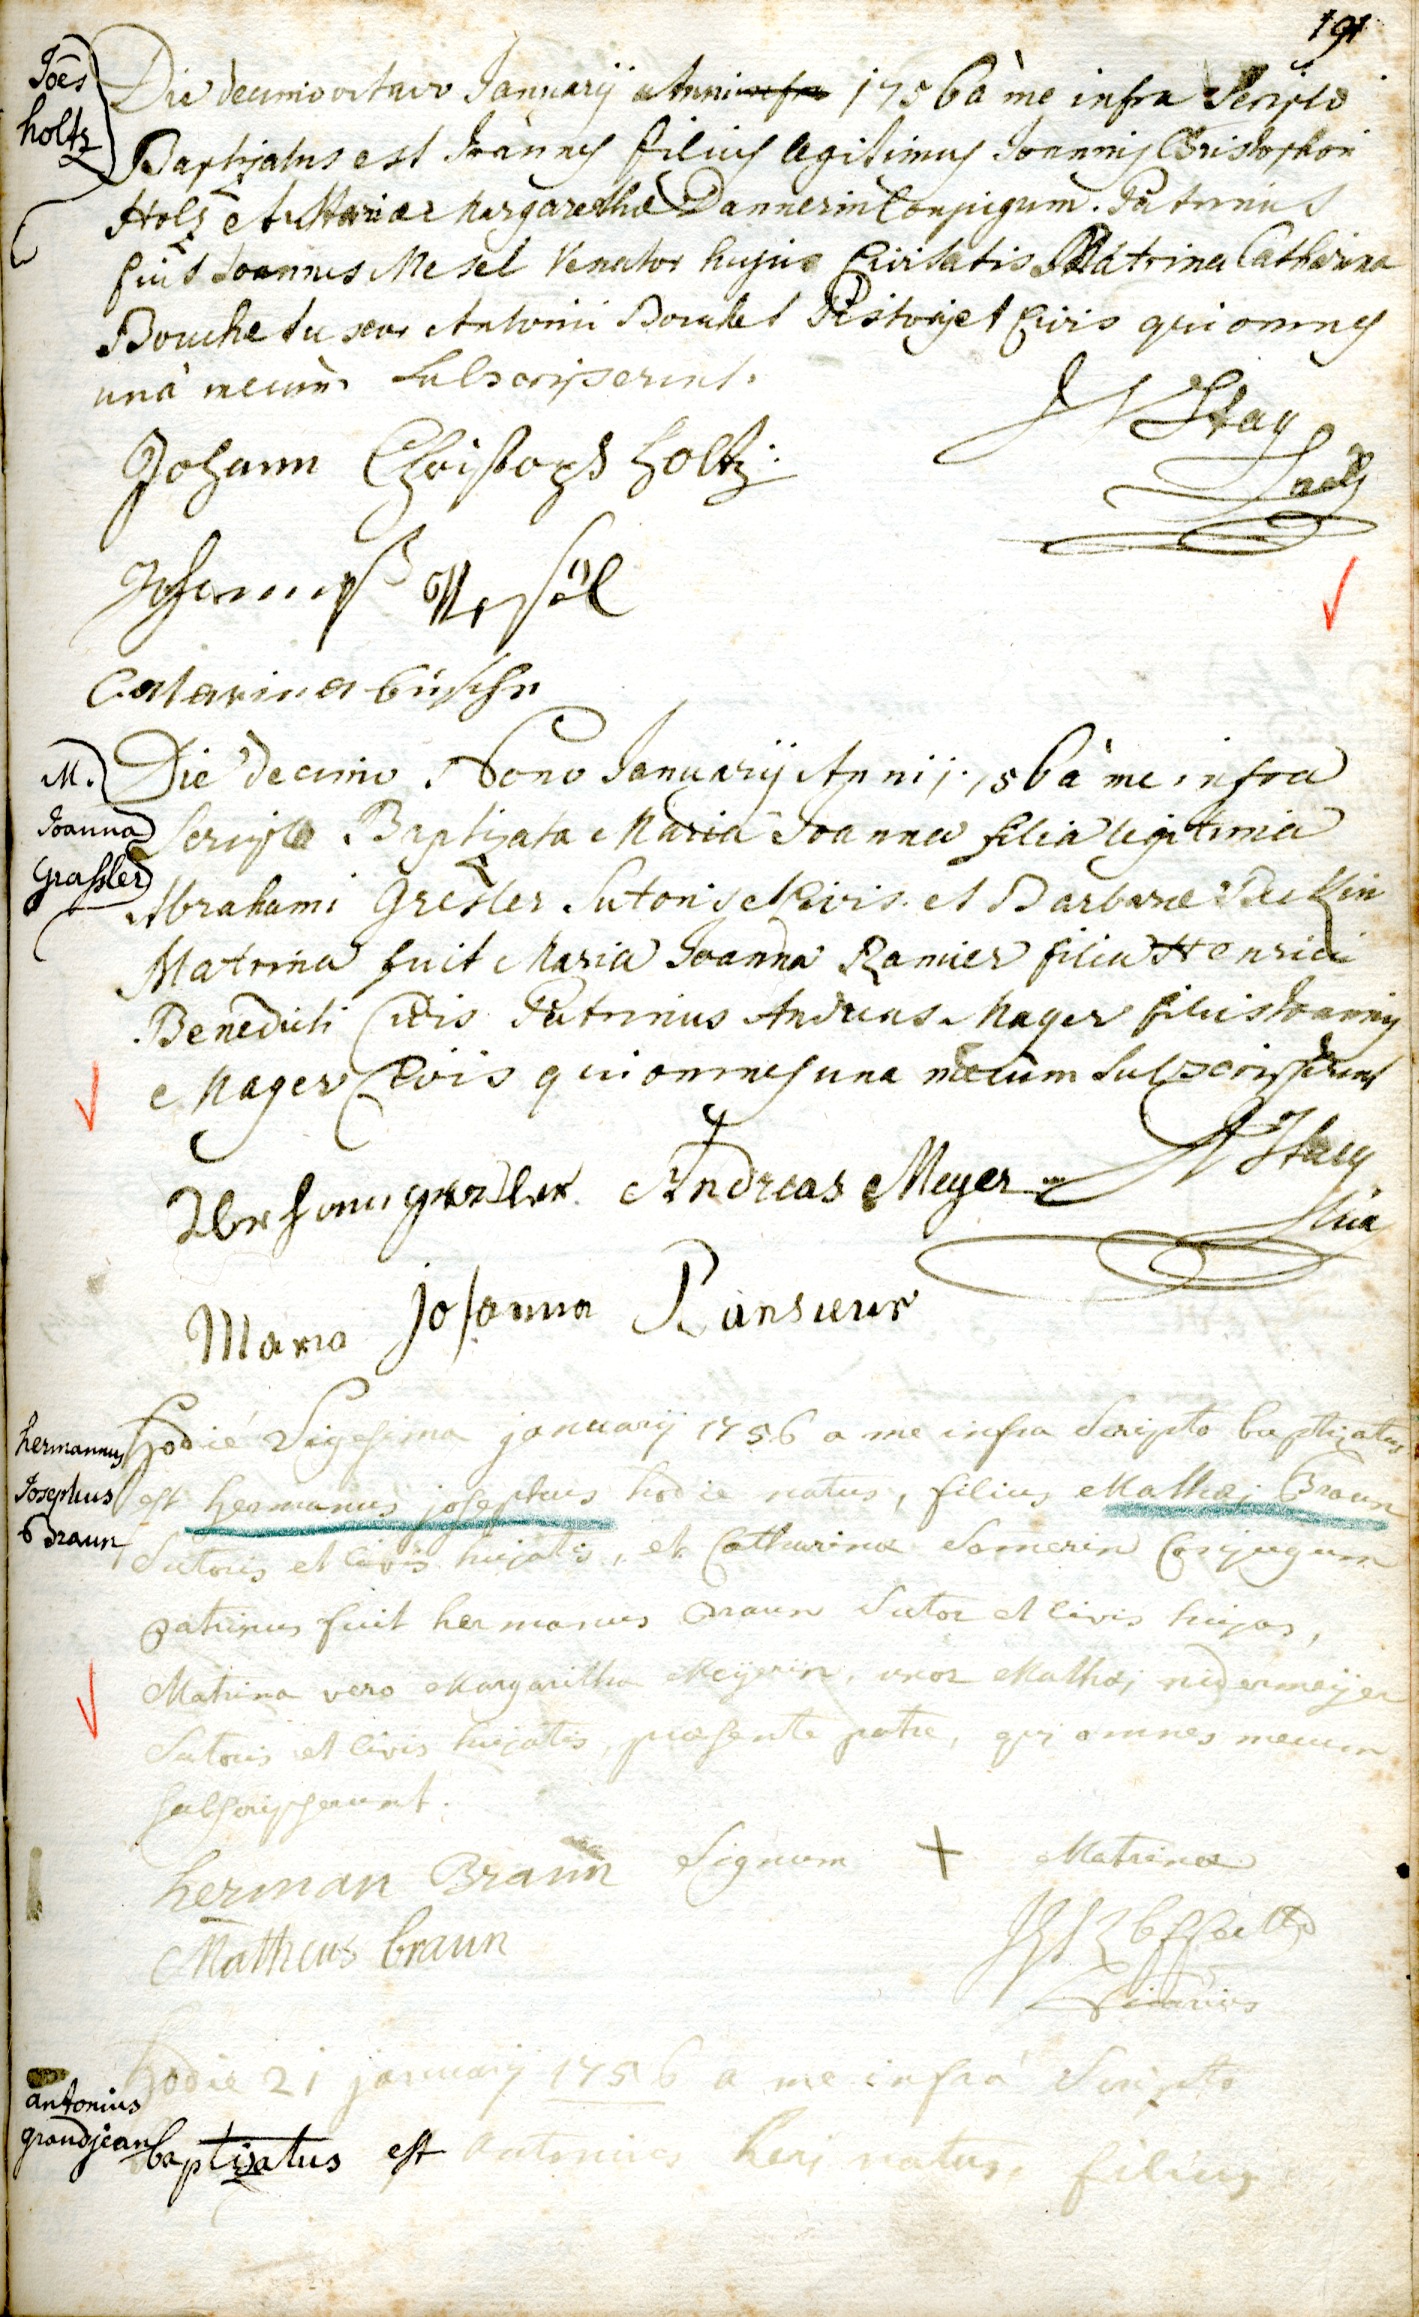 191
Joês
holtz
Die decimo octavo Januarij Anni 1756 à me infra Scripto
Baptizatus est Joannes filius legitimus Joannis Christophori
Holz et Mariae Margarethae Dannerin Conjugum. Patrinus
fuit Joannes Mesel Venator hujus Civitatis Matrina Catharina
Bouchet uxor Antonii Bouchet Pistoris et Civis qui omnes
unà mecum subscripserunt.
Johann Christoph holtz
Johannes Mesel
Catarina
M.
Joanna
Grassler
Die decimo Nono Januarij Anni 1756 à me infra
Scripto Baptizata Maria Joanna filia legitima
Abrahami Gresler Sutoris et Civis et Barbarae
Matrina fuit Maria Joanna Ramier filia Henrici
Benedicti Civis Patrinus Andreas Mager filius Joannis
Mager Civis qui omnes una mecum subscripserunt
Abraham gresler Andreas Meyer
Maria Johanna
hermannus
Josephus
Braun
hodie Vigesima januarij 1756 a me infra Scripto baptizatus
est hermanus josephus hodie natus, filius Mathaei Braun
Sutoris et Civis hujatis, et Catharinae Somerin Conjugum
patrinus fuit hermanus Braun Sutor et Civis hujas,
Matrina vero Margaritha Meijerin, uxor Mathaej nidermeijer
Sutoris et Civis hujatis, praesente patre, qui omnes mecum
subscripserunt.
herman Braun Signum + Matrinae
Mattheus braun
Vicarius
antonius
grandjean
hodie 21 januarij 1756 a me infrà Scripto
baptizatus est Antonius heri natus, filius